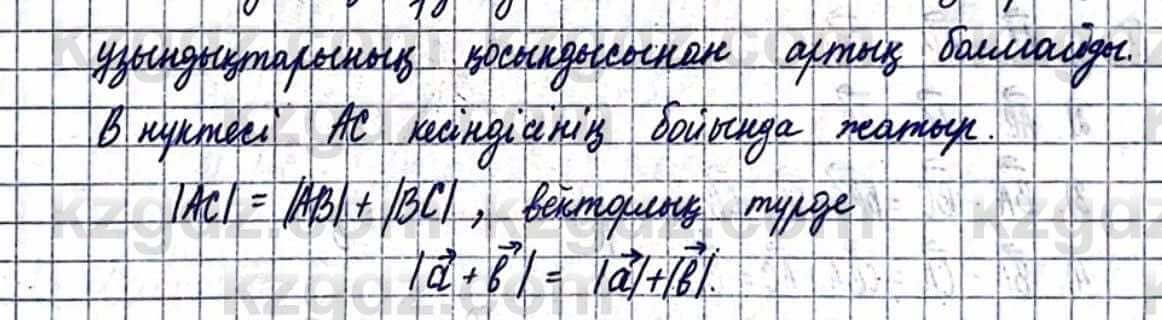 ұзындықтарының қосындысынан артық болмайды.
В нүктесі АС кесіндісінің бойында жатыр.
|AC| = |AB| + |BC| , векторлық түрде
|a⃗ + b⃗| = |a⃗|+|b⃗|.